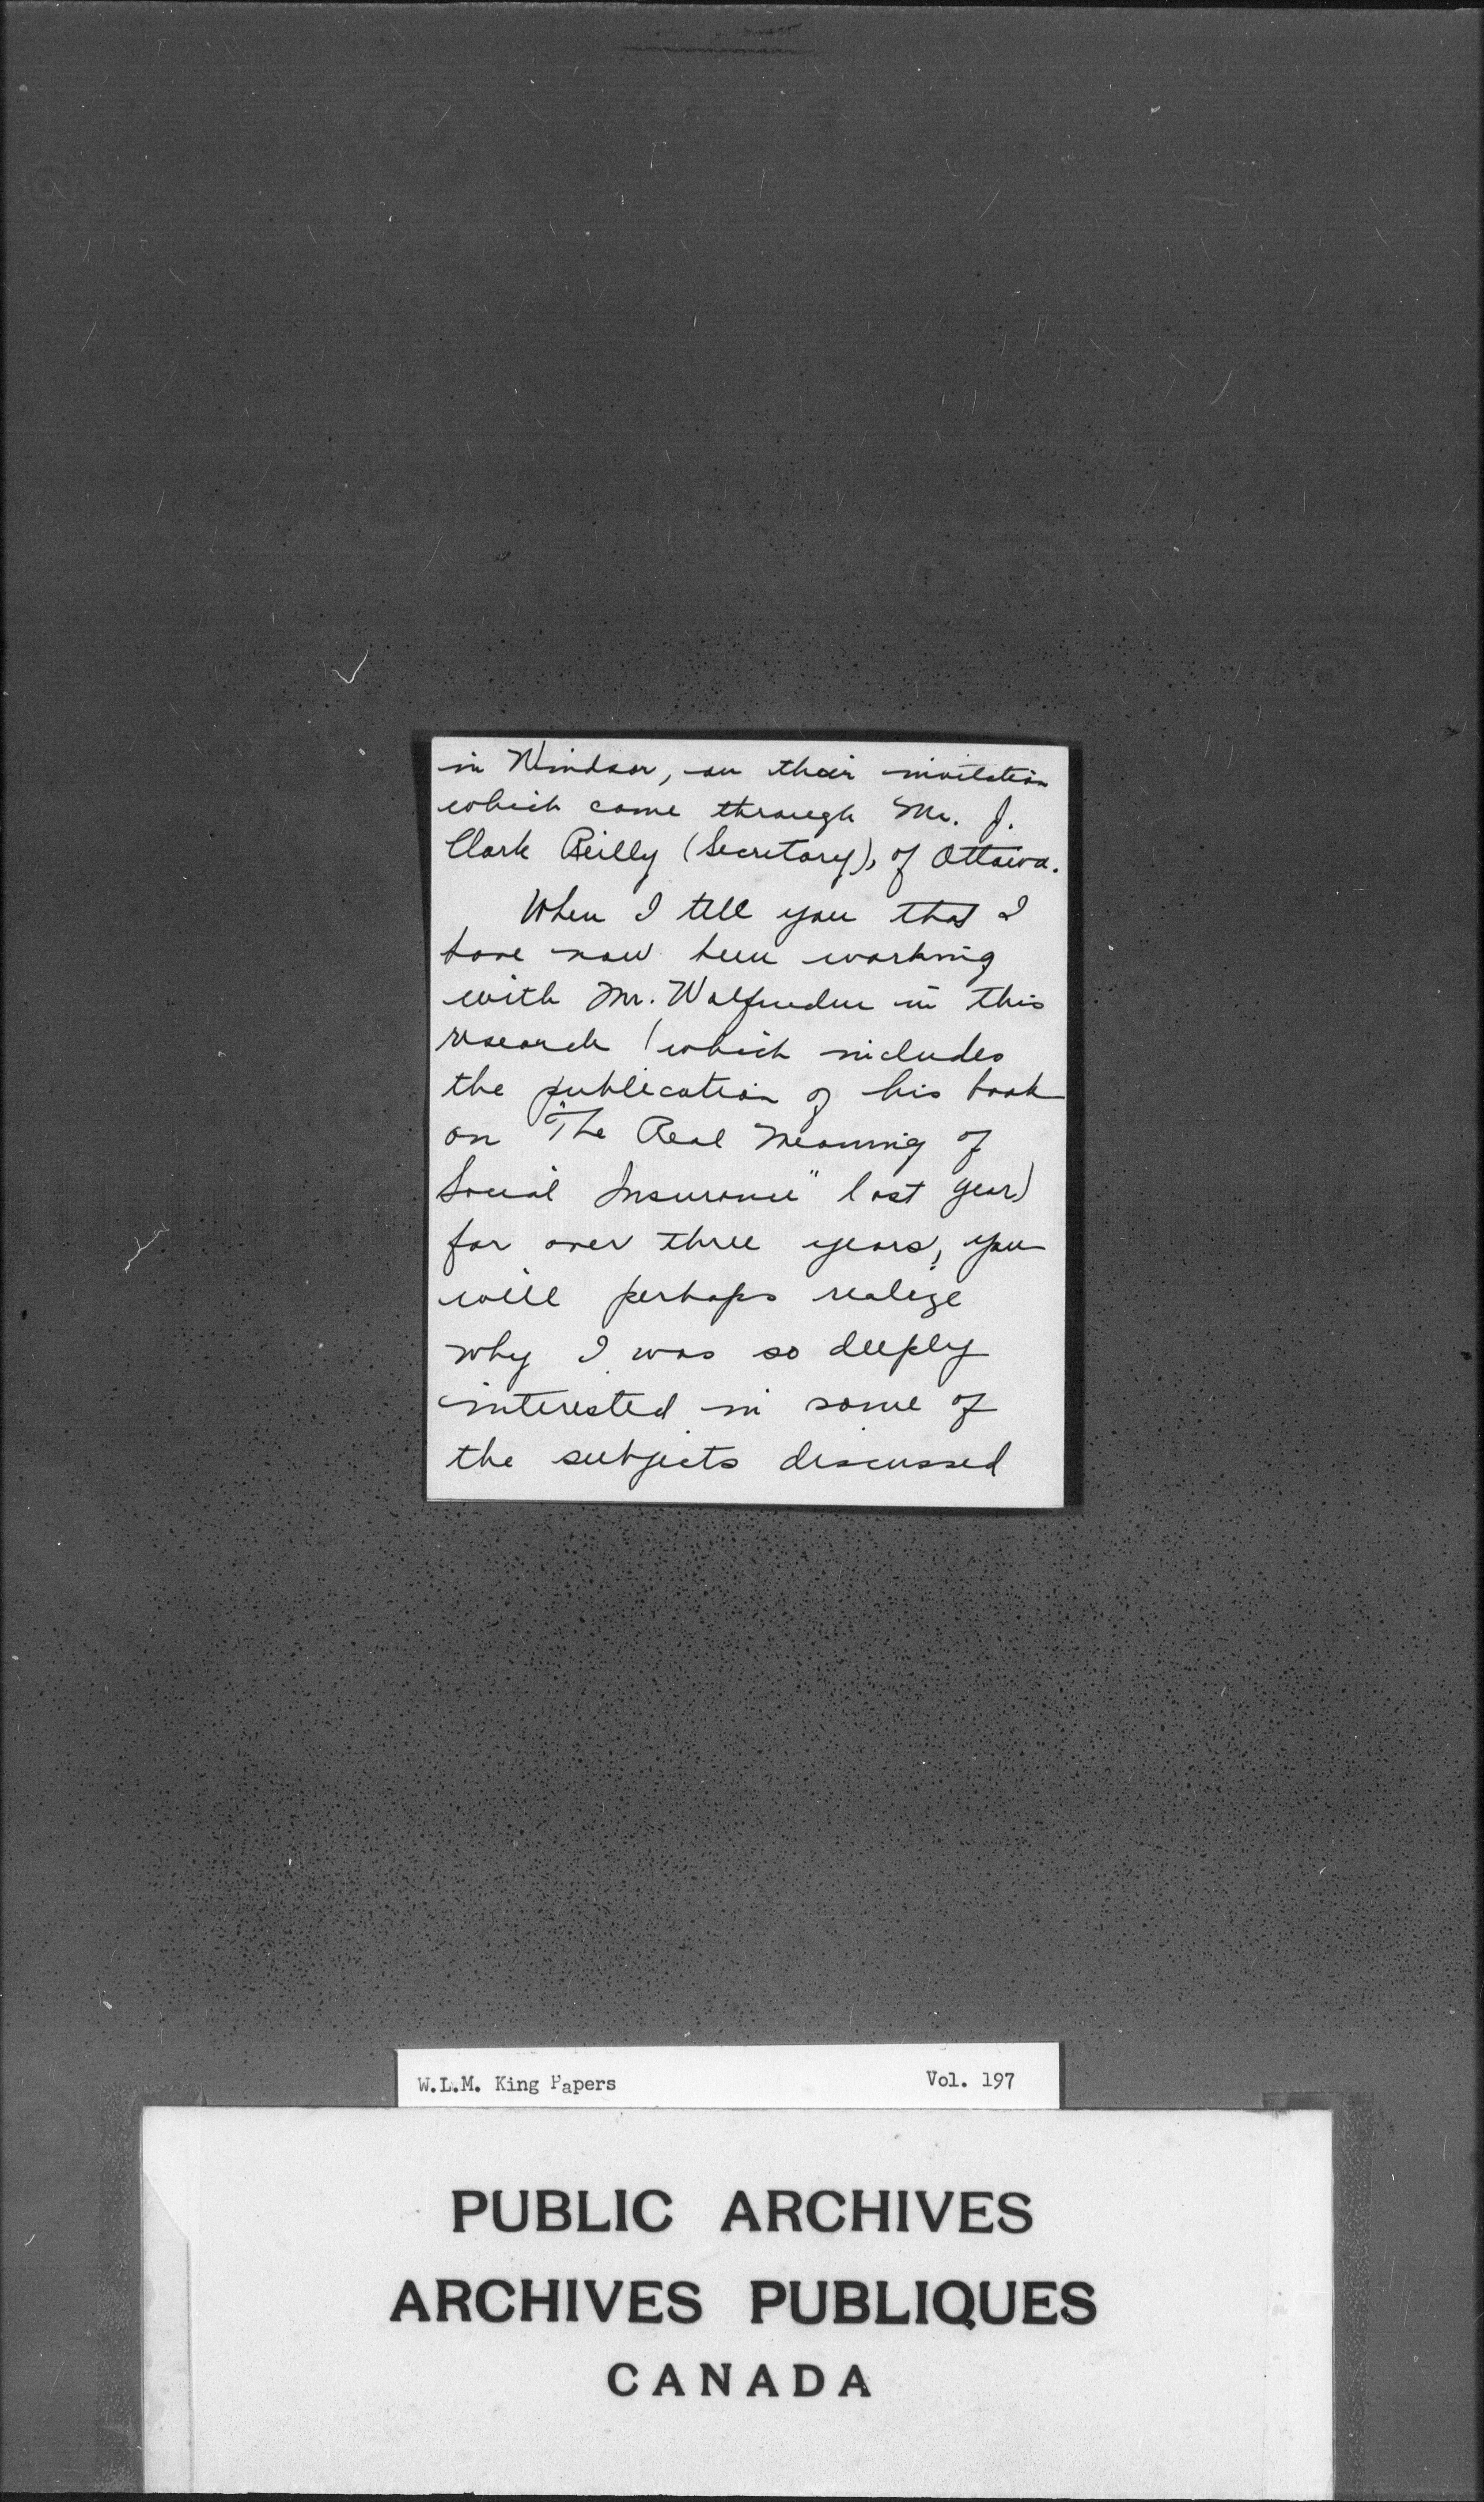 in Windsor, on their invitation
which came through Mr. J.
Clark Reilly (Secretary), of Ottawa.
When I tell you that I
have now been working
with Mr. Wolfenden in this
research (which includes
the publication of his book
on "The Real Meaning of
Social Insurance" last year)
for over three years, you
will perhaps realize
why I was so deeply
interested in some of
the subjects discussed
W.L.M. King Papers Vol. 197
PUBLIC ARCHIVES
ARCHIVES PUBLIQUES
CANADA